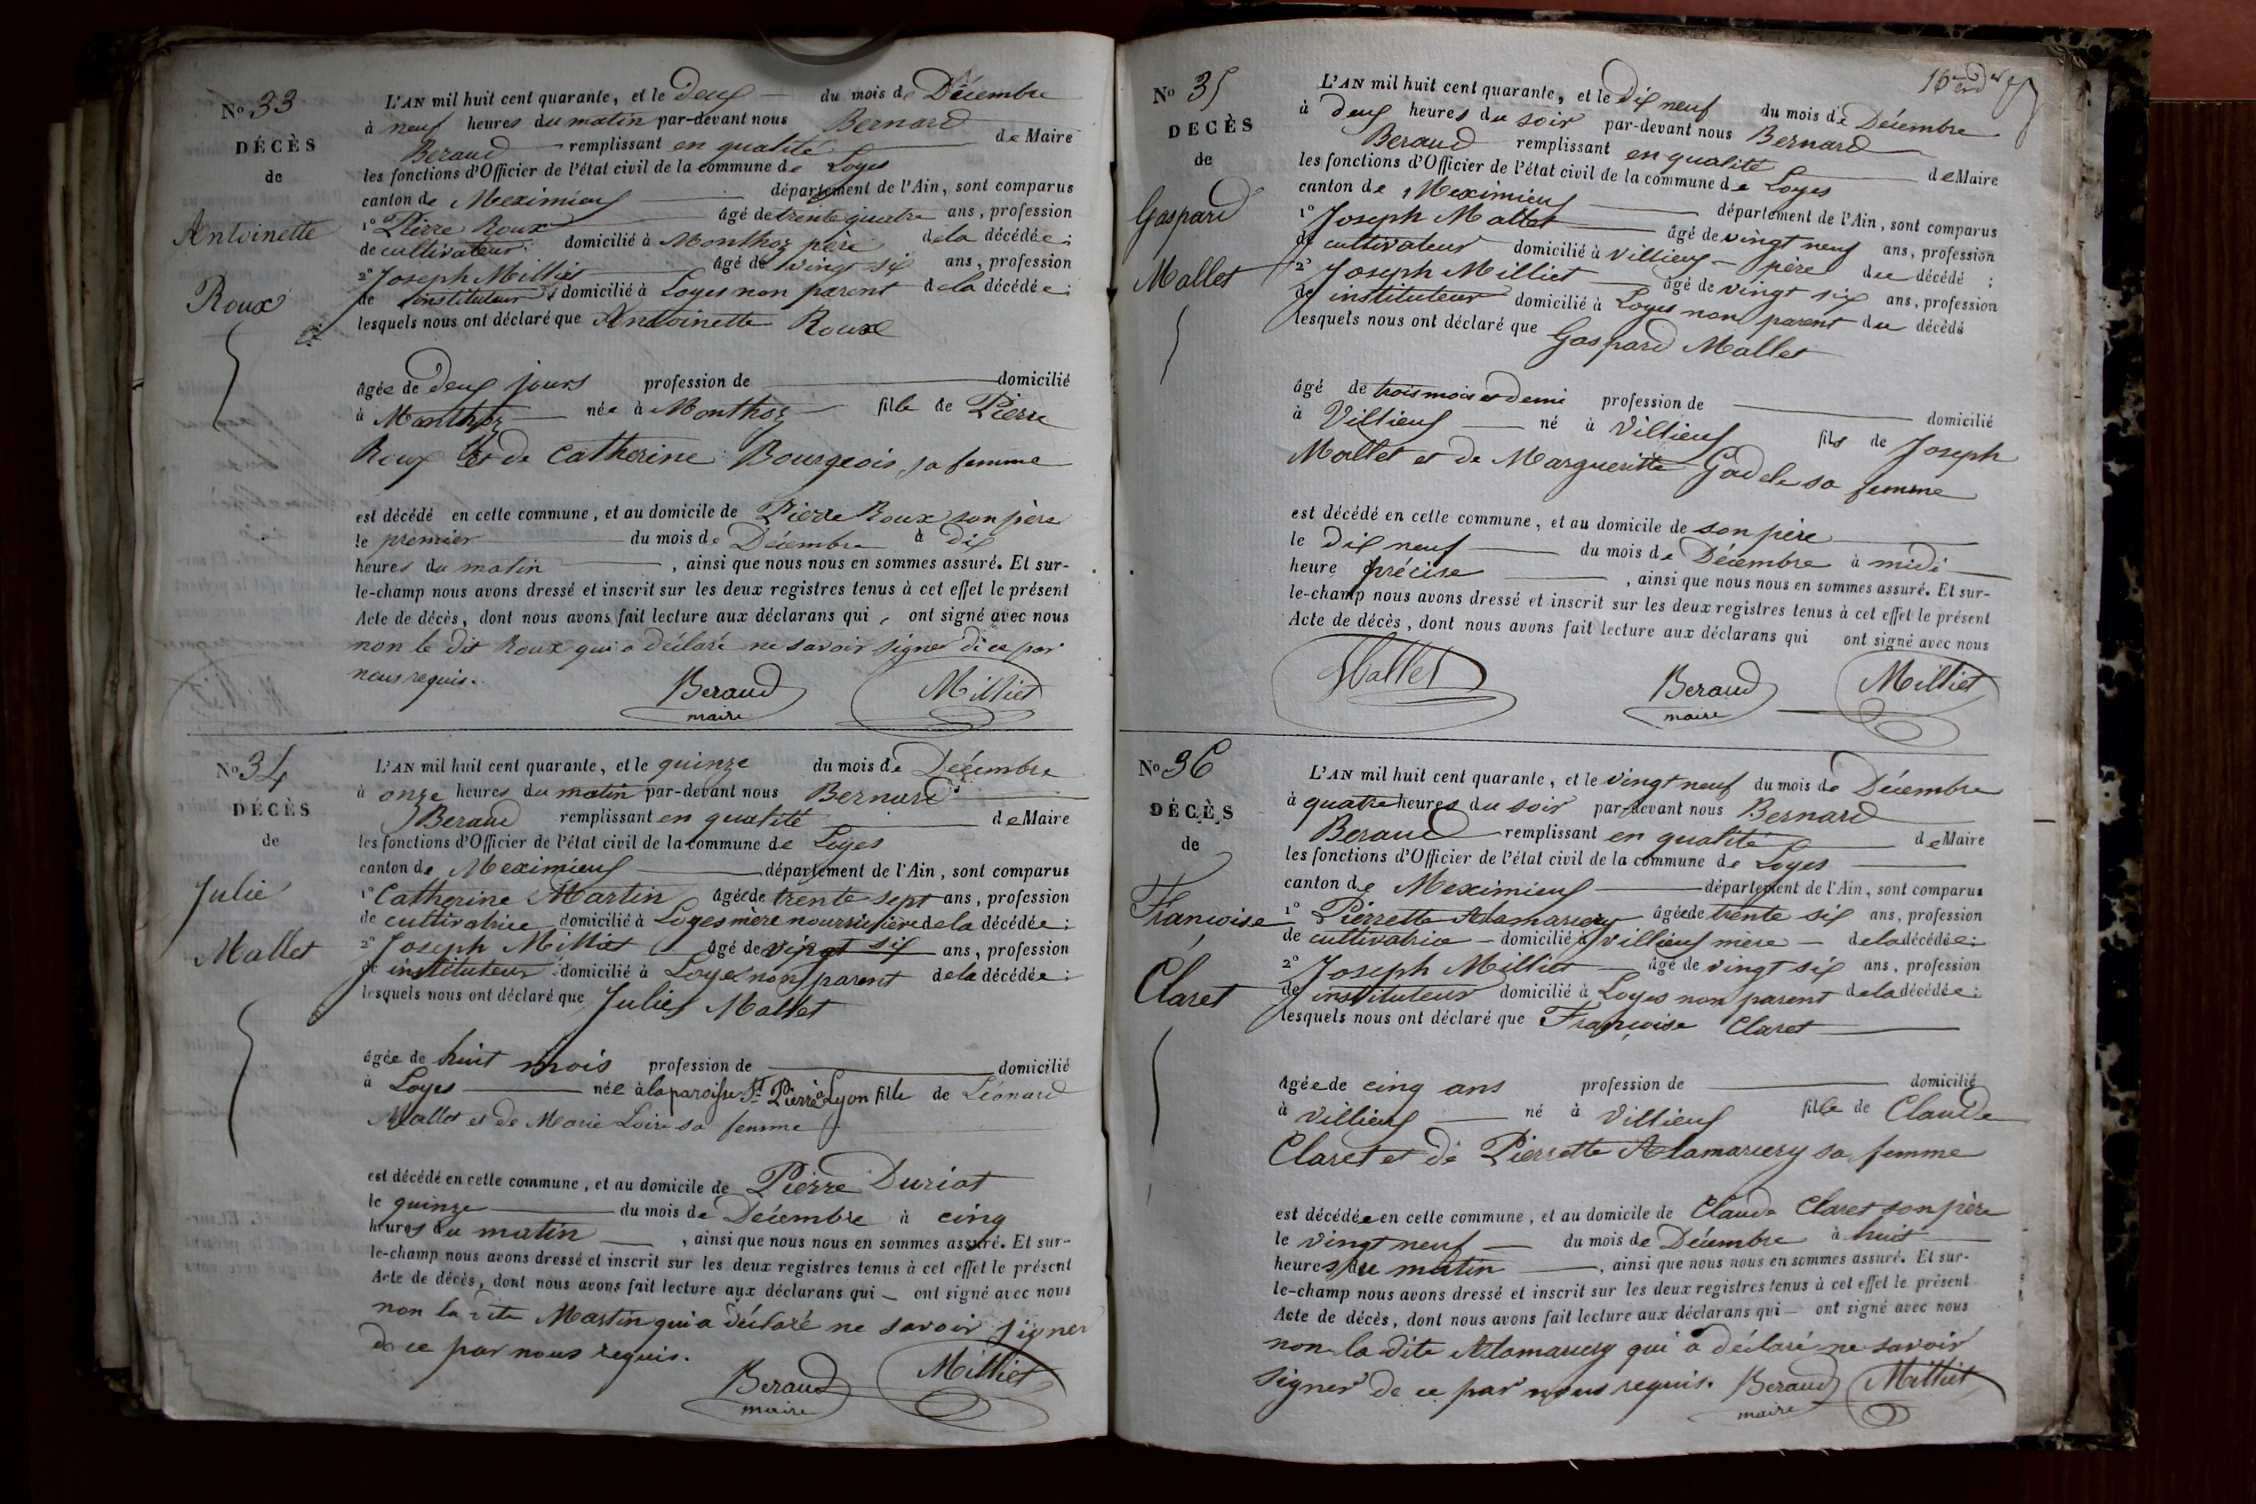 No 33
DÉCÈS
de
Antoinette
Roux
L'AN mil huit cent quarante, et le deux du mois de Décembre
à neuf heures du matin par-devant nous Bernard
Beraud remplissant en qualité de Maire
les fonctions d'Officier de l'état civil de la commune de Loyes
canton de Meximieux département de l'Ain, sont comparus
1° Pierre Roux âgé de trente quatre ans, profession
de cultivateur domicilié à Monthoz père de la décédée;
2° Joseph Milliet âgé de vingt six ans, profession
de instituteur domicilié à Loyes non parent de la décédée;
lesquels nous ont déclaré que Antoinette Roux
âgée de deux jours profession de domicilié
à Monthoz née à Monthoz fille de Pierre
Roux et de Catherine Bourgeois, sa femme
est décédé en cette commune, et au domicile de Pierre Roux son père
le premier du mois de Décembre à dix
heures du matin, ainsi que nous nous en sommes assuré. Et sur-
le-champ nous avons dressé et inscrit sur les deux registres tenus à cet effet le présent
Acte de décès, dont nous avons fait lecture aux déclarans qui ont signé avec nous
non le dit Roux qui a déclaré ne savoir signer de ce par
nous requis.
Beraud Milliet
maire
No 34
DÉCÈS
de
Julie
Mallet
L'AN mil huit cent quarante, et le quinze du mois de Décembre
à onze heures du matin par-devant nous Bernard
Beraud remplissant en qualité de Maire
les fonctions d'Officier de l'état civil de la commune de Loyes
canton de Meximieux département de l'Ain, sont comparus
1° Catherine Martin âgée de trente sept ans, profession
de cultivatrice domicilié à Loyes mère nourricière de la décédée;
2° Joseph Milliet âgé de vingt six ans, profession
de instituteur domicilié à Loyes non parent de la décédée;
lesquels nous ont déclaré que Julie Mallet
âgée de huit mois profession de domicilié
à Loyes née à la paroisse St Pierre à Lyon fille de Léonard
Mallet et de Marie Loire sa femme
est décédé en cette commune, et au domicile de Pierre Duriat
le quinze du mois de Décembre à cinq
heures du matin, ainsi que nous nous en sommes assuré. Et sur-
le-champ nous avons dressé et inscrit sur les deux registres tenus à cet effet le présent
Acte de décès, dont nous avons fait lecture aux déclarans qui ont signé avec nous
non la dite Martin qui a déclaré ne savoir signer
de ce par nous requis.
Beraud Milliet
maire
No 35
DECÈS
de
Gaspard
Mallet
L'AN mil huit cent quarante, et le dix neuf du mois de Décembre
à deux heures du soir par-devant nous Bernard
Beraud remplissant en qualité de Maire
les fonctions d'Officier de l'état civil de la commune de Loyes
canton de Meximieux département de l'Ain, sont comparus
1° Joseph Mallet âgé de vingt neuf ans, profession
de cultivateur domicilié à Villieux père du décédé;
2° Joseph Milliet âgé de vingt six ans, profession
de instituteur domicilié à Loyes non parent du décédé
lesquels nous ont déclaré que Gaspard Mallet
âgé de trois mois et demi profession de domicilié
à Villieux né à Villieux fils de Joseph
Mallet et de Margueritte Godele sa femme
est décédé en cette commune, et au domicile de son père
le dix neuf du mois de Décembre à midi
heure précise, ainsi que nous nous en sommes assuré. Et sur-
le-champ nous avons dressé et inscrit sur les deux registres tenus à cet effet le présent
Acte de décès, dont nous avons fait lecture aux déclarans qui ont signé avec nous
Mallet Beraud Milliet
maire
No 36
DÉCÈS
de
Francoise
Claret
L'AN mil huit cent quarante, et le vingt neuf du mois de Décembre
à quatre heures du soir par-devant nous Bernard
Beraud remplissant en qualité de Maire
les fonctions d'Officier de l'état civil de la commune de Loyes
canton de Meximieux département de l'Ain, sont comparus
1° Pierrette âgée de trente six ans, profession
de cultivatrice domicilié à Villieux mère de la décédée;
2° Joseph Milliet âgé de vingt six ans, profession
de instituteur domicilié à Loyes non parent de la décédée;
lesquels nous ont déclaré que Françoise Claret
âgée de cinq ans profession de domicilié
à Villieux né à Villieux fille de Claude
Claret et de Pierrette sa femme
est décédée en cette commune, et au domicile de Claude Claret son père
le vingt neuf du mois de Décembre à huit
heures du matin, ainsi que nous nous en sommes assuré. Et sur-
le-champ nous avons dressé et inscrit sur les deux registres tenus à cet effet le présent
Acte de décès, dont nous avons fait lecture aux déclarans qui ont signé avec nous
non la dite qui a déclaré ne savoir
signer de ce par nous requis. Beraud Milliet
maire